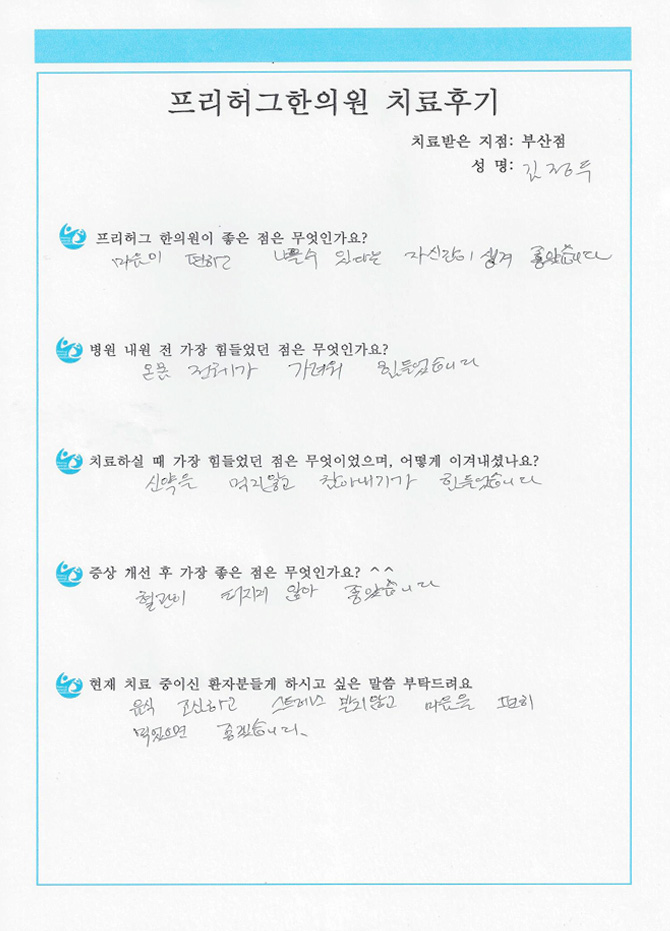 프리허그한의원 치료후기
치료받은 지점: 부산점
성 명: 김정두
프리허그 한의원이 좋은 점은 무엇인가요?
마음이 편하고 나을수 있다는 자신감이 생겨 좋았습니다
병원 내원 전 가장 힘들었던 점은 무엇인가요?
온몸 전체가 가려워 힘들었습니다
치료하실 때 가장 힘들었던 점은 무엇이었으며, 어떻게 이겨내셨나요?
신약을 먹지않고 참아내기가 힘들었습니다
증상 개선 후 가장 좋은 점은 무엇인가요? ^^
혈관이 터지지 않아 좋았습니다
현재 치료 중이신 환자분들게 하시고 싶은 말씀 부탁드려요
음식 조심하고 스트레스 받지않고 마음을 편히
먹었으면 좋겠습니다.